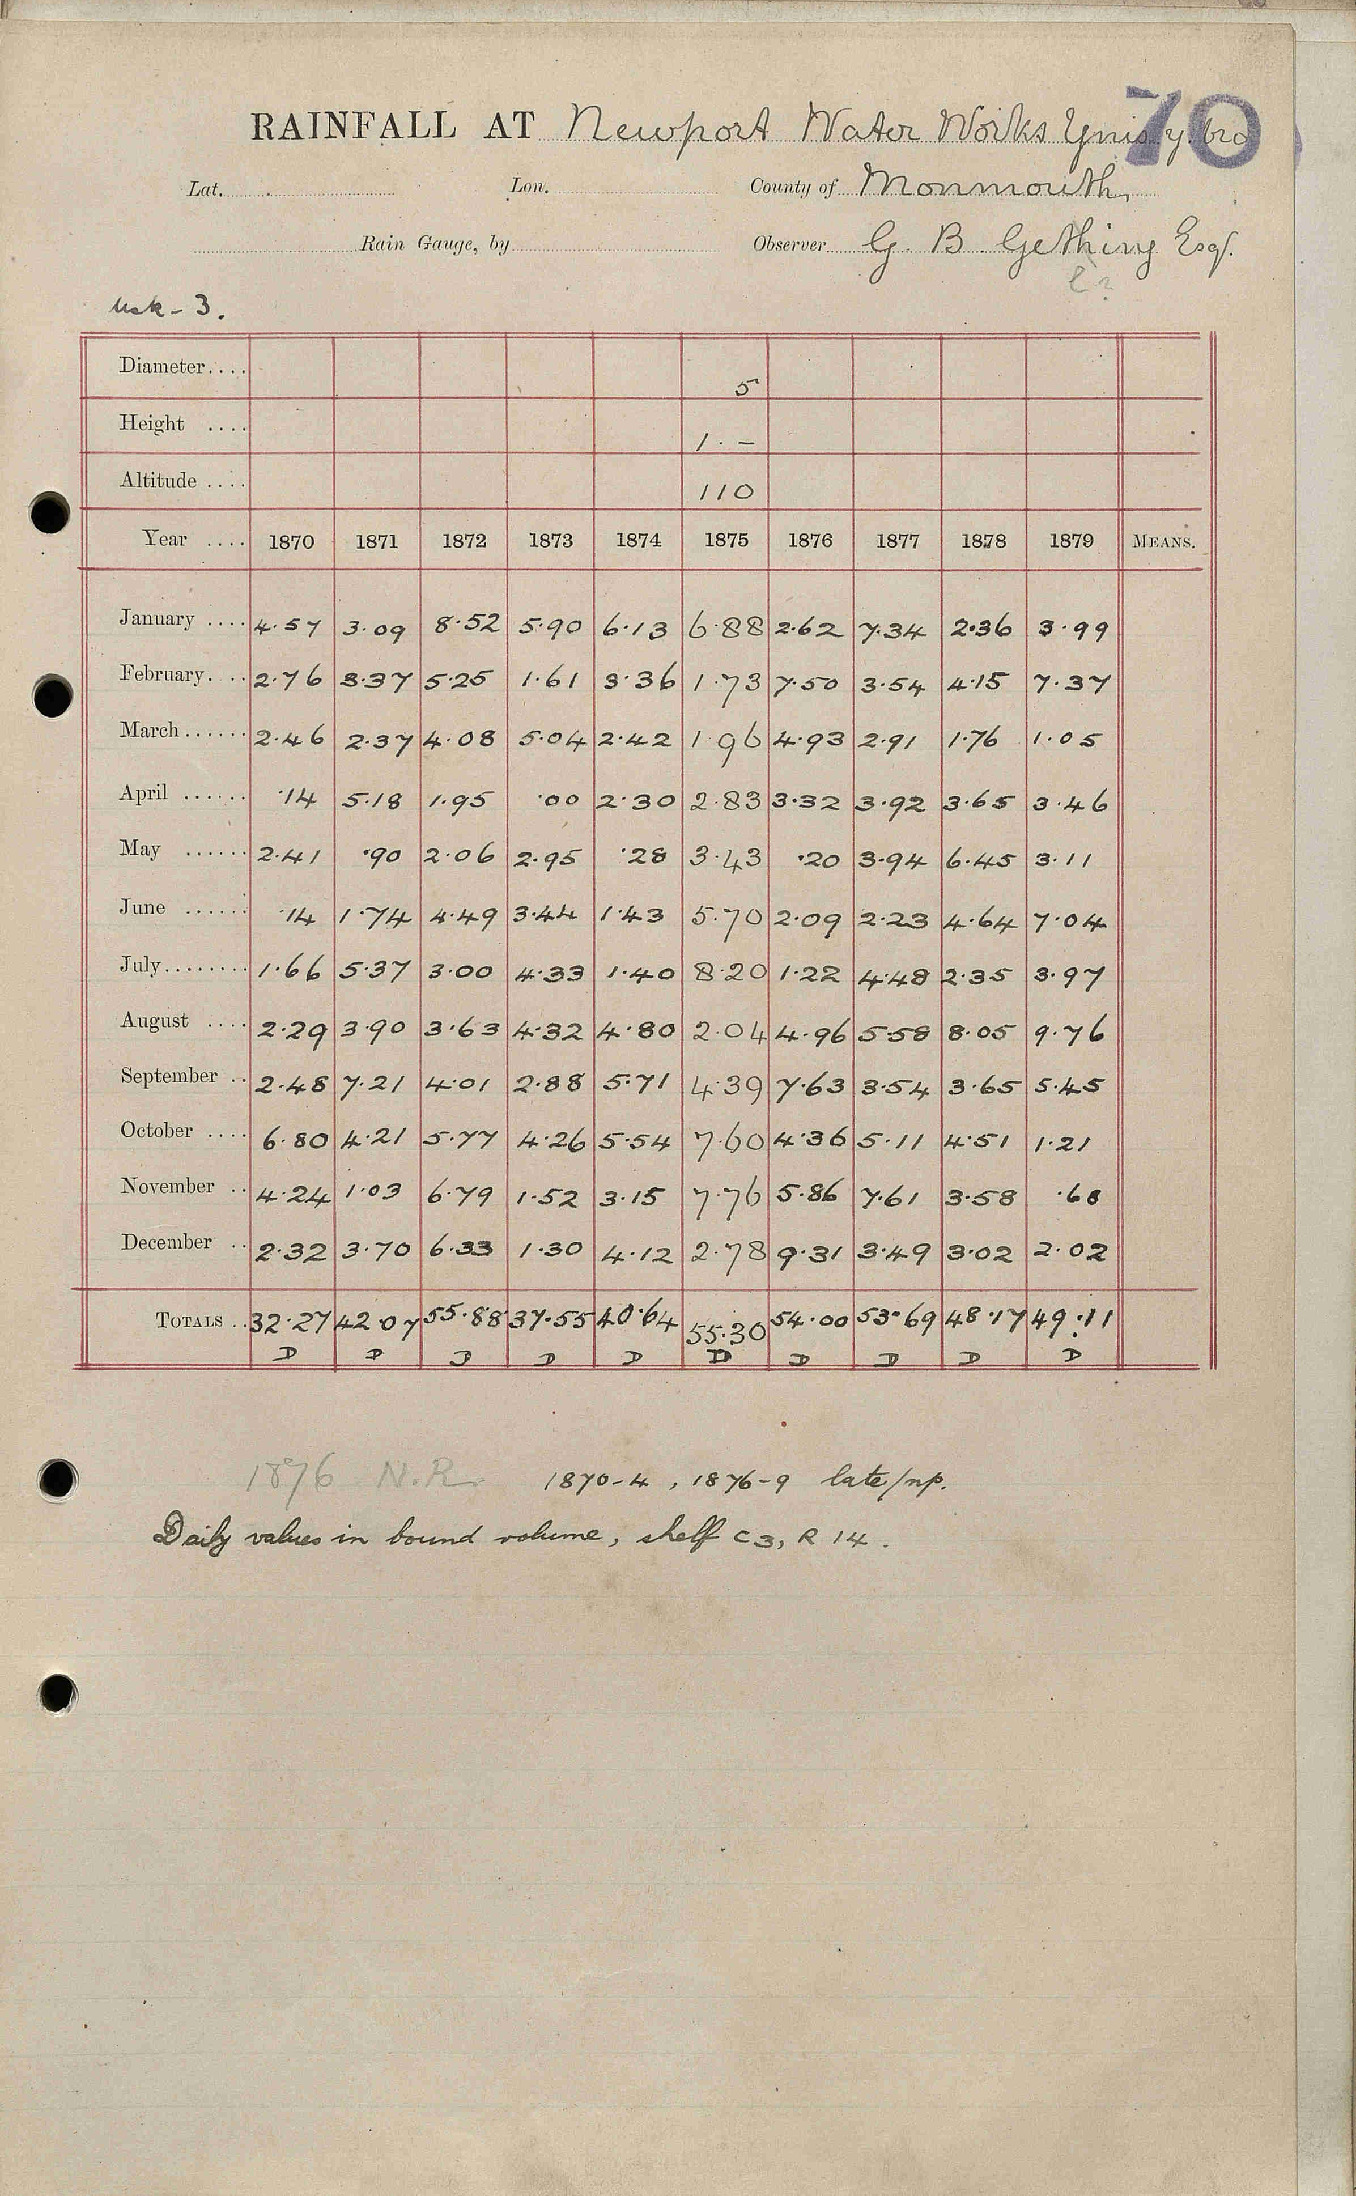 70
RAINFALL AT Newport Water Works Ynis y bro
Lat. Lon. County of Monmouth,
Rain Gauge, by Observer G. B. Gething Esqr.
Usk - 3.
Diameter.... 5
Height .... 1 . -
Altitude .... 110
Year .... 1870 1871 1872 1873 1874 1875 1876 1877 1878 1879 MEANS.
January .... 4.57 3.09 8.52 5.90 6.13 6.88 2.62 7.34 2.36 3.99
February.... 2.76 3.37 5.25 1.61 3.36 1.73 7.50 3.54 4.15 7.37
March...... 2.46 2.37 4.08 5.04 2.42 1.96 4.93 2.91 1.76 1.05
April ...... .14 5.18 1.95 .00 2.30 2.83 3.32 3.92 3.65 3.46
May ...... 2.41 .90 2.06 2.95 .28 3.43 .20 3.94 6.45 3.11
June ...... .14 1.74 4.49 3.44 1.43 5.70 2.09 2.23 4.64 7.04
July........ 1.66 5.37 3.00 4.33 1.40 8.20 1.22 4.48 2.35 3.97
August .... 2.29 3.90 3.63 4.32 4.80 2.04 4.96 5.58 8.05 9.76
September .. 2.48 7.21 4.01 2.88 5.71 4.39 7.63 3.54 3.65 5.45
October .... 6.80 4.21 5.77 4.26 5.54 7.60 4.36 5.11 4.51 1.21
November .. 4.24 1.03 6.79 1.52 3.15 7.76 5.86 7.61 3.58 .68
December .. 2.32 3.70 6.33 1.30 4.12 2.78 9.31 3.49 3.02 2.02
TOTALS .. 32.27 42.07 55.88 37.55 40.64 55.30 54.00 53.69 48.17 49.11
D D D D D D D D D D
1876 N.R. 1870-4, 1876-9 late/np.
Daily values in bound volume, shelf C3, R 14.